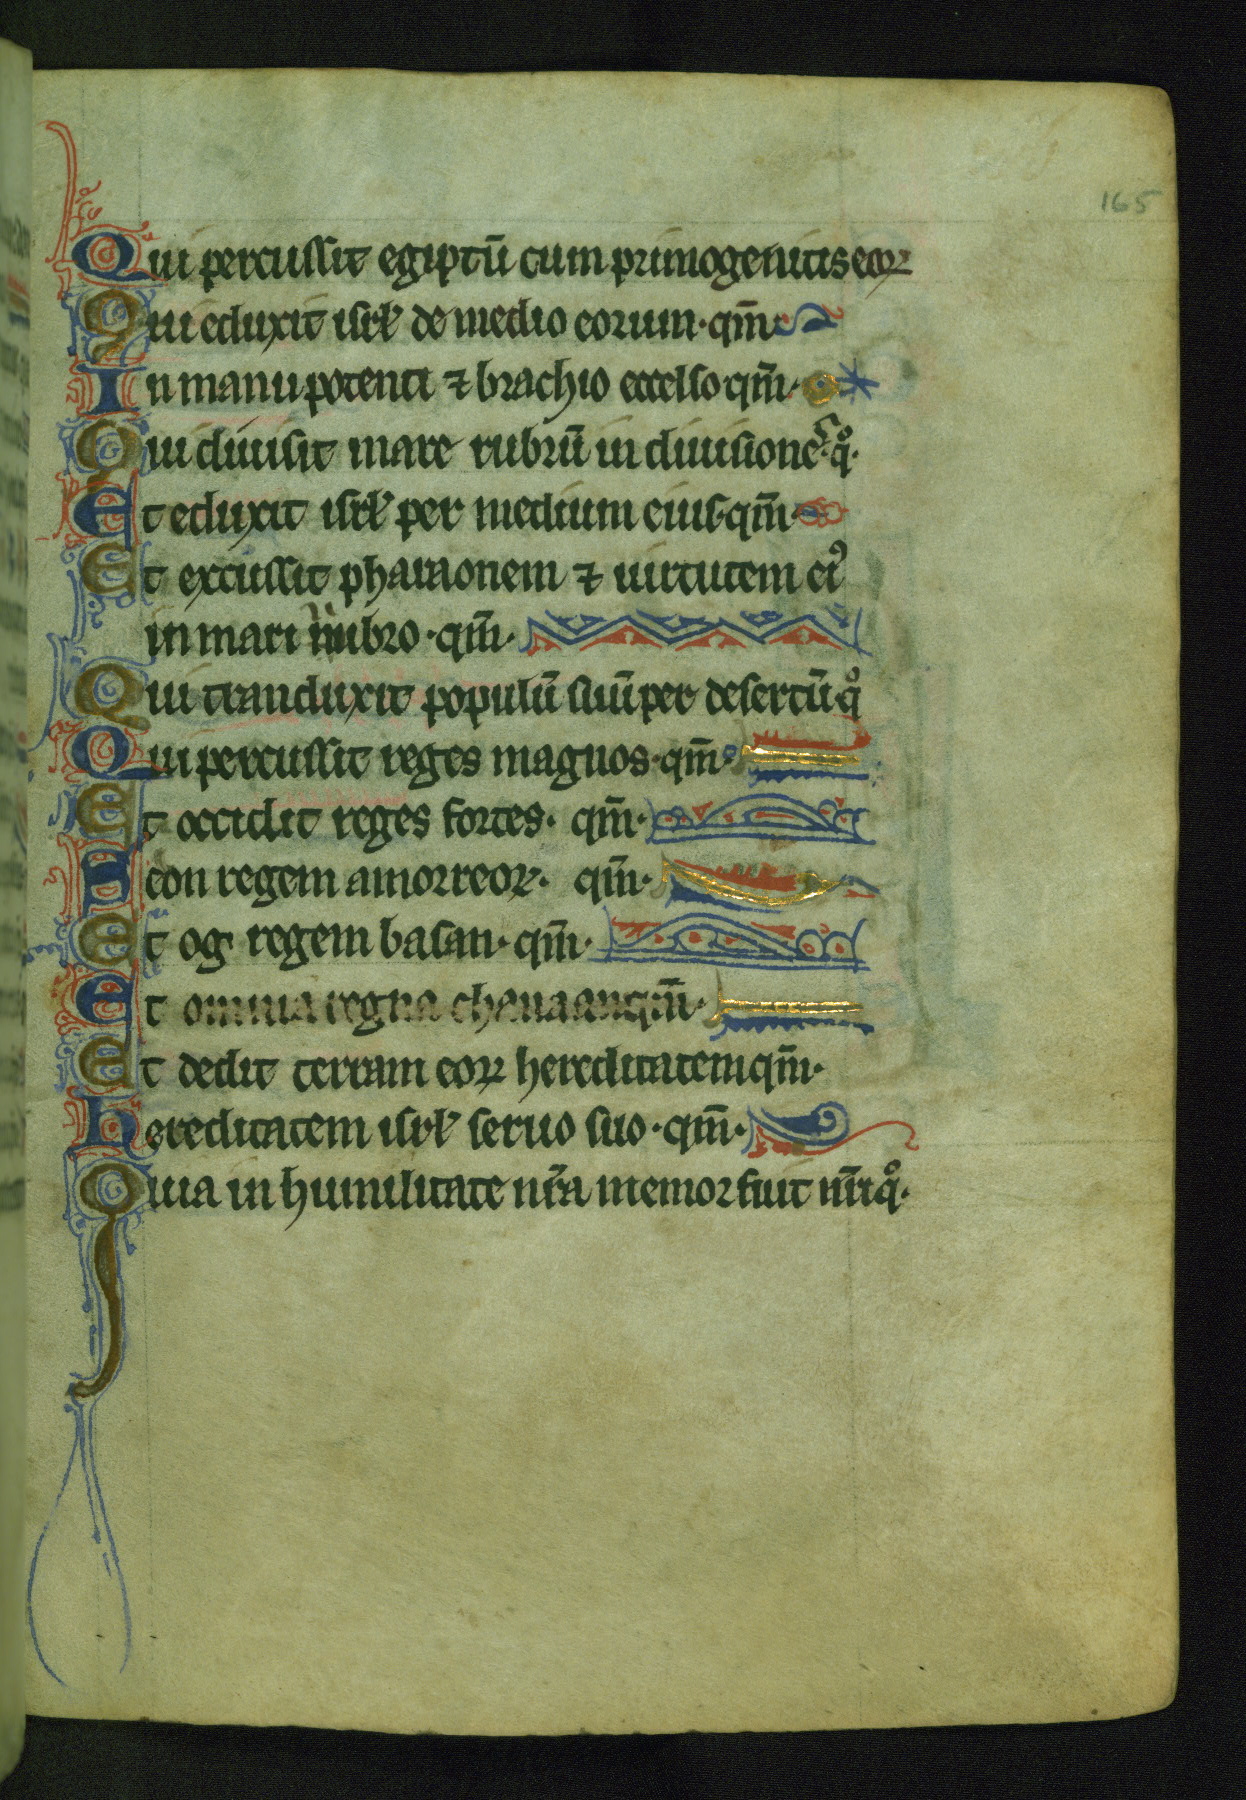 165
Qui percussit egiptū cum primogenitis eoꝝ
Qui eduxit isrl̄ de medio eorum · qm̄
In manu potenti ⁊ brachio excelso qm̄ ·
Qui diuisit mare rubrū in diuisiōes · qͦ ·
Et eduxit isrl̄ per medium eius · qm̄ ·
Et excussit pharaonem ⁊ uirtutem eiꝰ
in mari rubro · qm̄ ·
Qui tranduxit populū suū per desertū qͦ
Qui percussit reges magnos · qm̄ ·
Et occidit reges fortes · qm̄ ·
Seon regem amorreoꝝ · qm̄ ·
Et og regem basan · qm̄ ·
Et omnia regna chanaan qm̄ ·
Et dedit terram eoꝝ hereditatem qm̄ ·
Hereditatem isrl̄ seruo suo · qm̄ ·
Quia in humilitate nr̄a memor fuit nr̄i qͦ ·